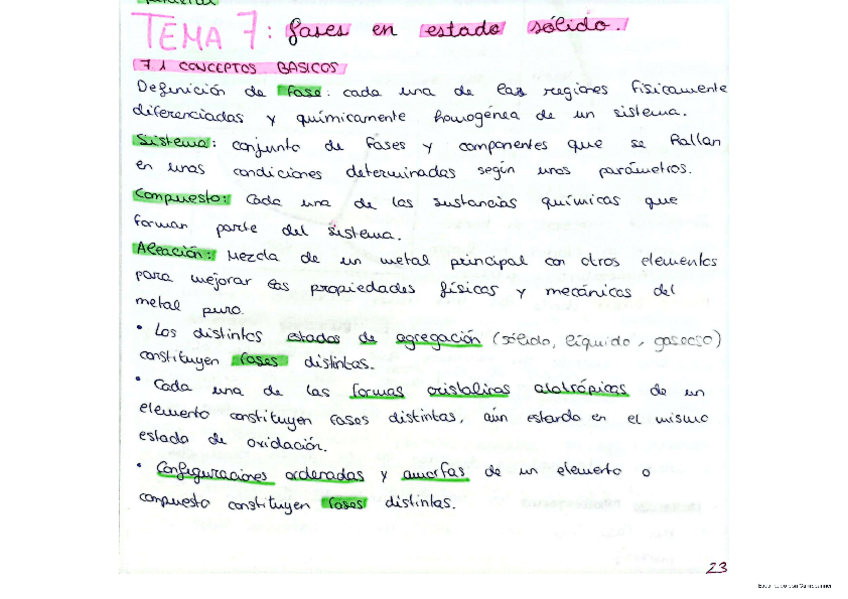 TEMA 7: fases en estado sólido.
7.1 CONCEPTOS BASICOS
Definición de fase: cada una de las regiones físicamente
diferenciadas y químicamente homogénea de un sistema.
Sistema: conjunto de fases y componentes que se hallan
en unas condiciones determinadas según unos parámetros.
Compuesto: Cada una de las sustancias químicas que
forman parte del sistema.
Aleación: Mezcla de un metal principal con otros elementos
para mejorar las propiedades físicas y mecánicas del
metal puro.
• Los distintos estados de agregación (sólido, líquido, gaseoso)
constituyen fases distintas.
• Cada una de las formas cristalinas alotrópicas de un
elemento constituyen fases distintas, aún estando en el mismo
estado de oxidación.
• Configuraciones ordenadas y amorfas de un elemento o
compuesto constituyen fases distintas.
23